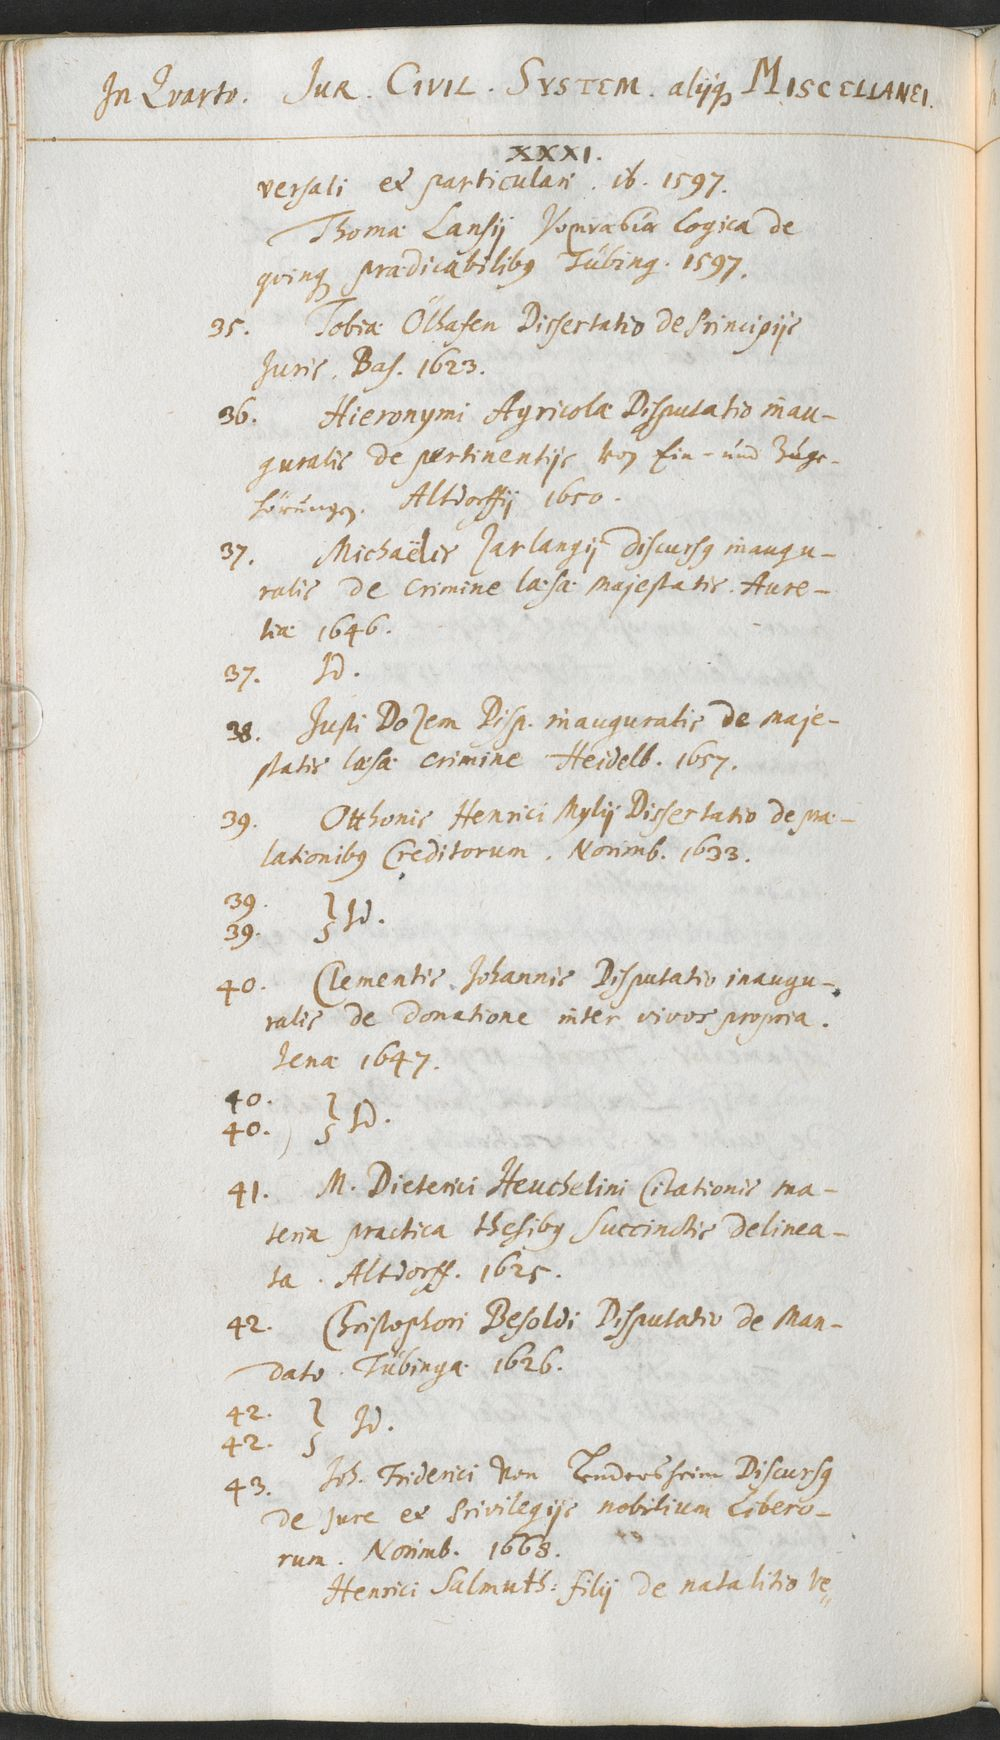 In Qvarto. JUR. CIVIL. SYSTEM. aliisq MISCELLANEI.
XXXI.
versali et particulari. ib. 1597.
Thomæ Lansij Logica de
quinq prædicabilibus Tübing. 1597.
35. Tobiæ Ölhafen Dissertatio de Principijs
Juris. Bas. 1623.
36. Hieronymi Agricolæ Disputatio inau-
guralis de pertinentijs von Ein- und Zuge-
hörungen. Altdorffij 1650.
37. Michaëlis Jarlangij discursus inaugu-
ralis de crimine læsæ majestatis. Aure-
liæ 1646.
37. Id.
38. Justi Dozem Disp. inauguralis de maje-
statis læsæ crimine Heidelb. 1657.
39. Otthonis Henrici Mylij Dissertatio de præ-
lationibus Creditorum. Norimb. 1633.
39.
39. } Id.
40. Clementis Johannis Disputatio inaugu-
ralis de donatione inter vivos propria.
Jenæ 1647.
40.
40. } Id.
41. M. Dieterici Heuchelini Citationis ma-
teria practica thesibus succinctis delinea-
ta. Altdorff. 1625.
42. Christophori Besoldi Disputatio de Man-
dato. Tübingæ 1626.
42.
42. } Id.
43. Joh. Friderici von Discursus
de Jure et Privilegijs nobilium Libero-
rum. Norimb. 1668.
Henrici Salmuth: filij de natalitio ve„